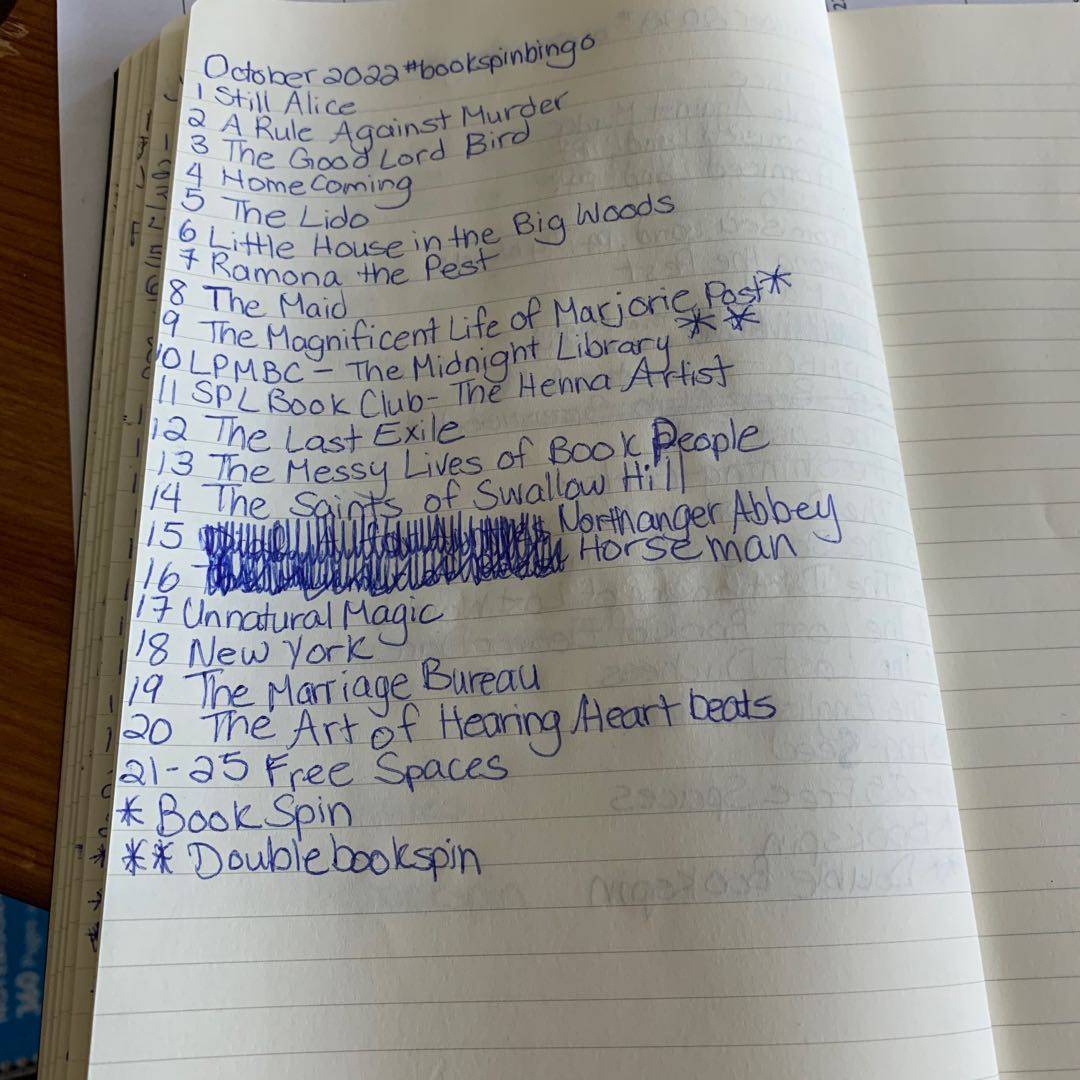 October 2022 #bookspinbingo
1 Still Alice
2 A Rule Against Murder
3 The Good Lord Bird
4 Homecoming
5 The Lido
6 Little House in the Big Woods
7 Ramona the Pest
8 The Maid
9 The Magnificent Life of Marjorie Post *
10 LPMBC - The Midnight Library **
11 SPL Book Club - The Henna Artist
12 The Last Exile
13 The Messy Lives of Book People
14 The Saints of Swallow Hill
15 Northanger Abbey
16 Horseman
17 Unnatural Magic
18 New York
19 The Marriage Bureau
20 The Art of Hearing Heartbeats
21-25 Free Spaces
* Book Spin
** Doublebookspin
360 Pages